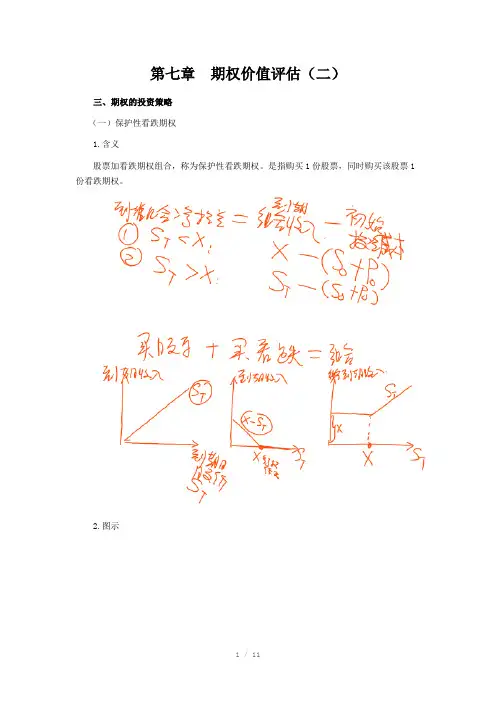 第七章 期权价值评估（二）
三、期权的投资策略
（一）保护性看跌期权
1.含义
股票加看跌期权组合，称为保护性看跌期权。是指购买1份股票，同时购买该股票1
份看跌期权。
到期组合净损益 = 到期组合收入 - 初始投资成本
① S_T < X: X - (S_0 + P_0)
② S_T > X: S_T - (S_0 + P_0)
买股票 + 买看跌 = 组合
到期收入 到期收入 到期收入
S_T X-S_T S_T
X
X X S_T
S_T S_T
2.图示
1 / 11